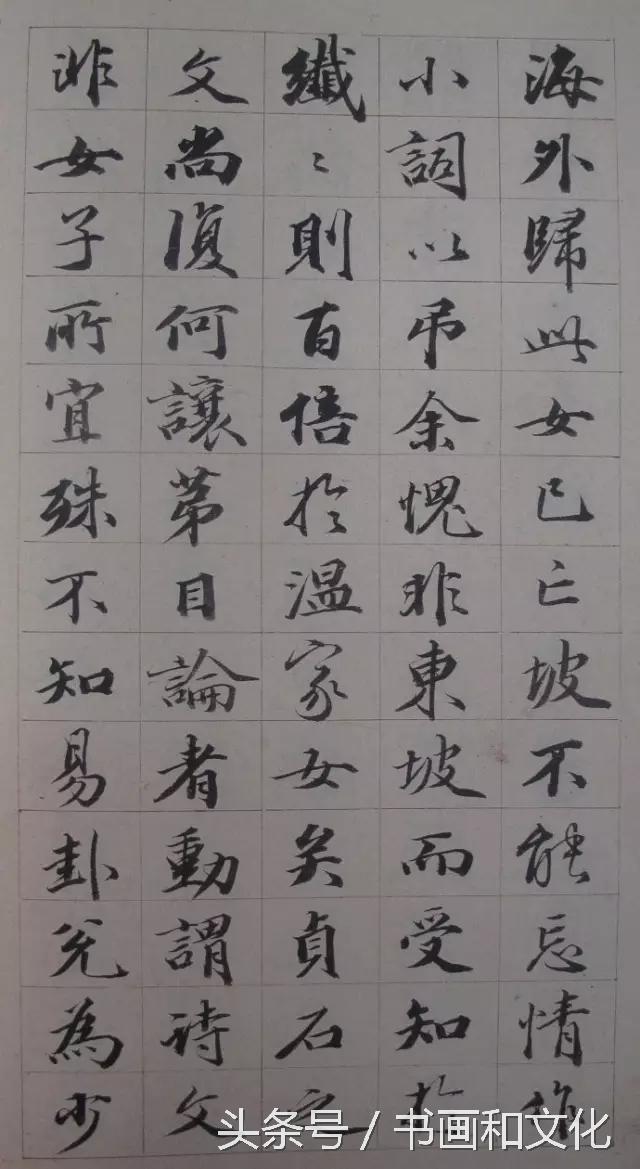 海外歸此女已亡坡不能忘情作
小詞以弔余愧非東坡而受知於
纖〻則百倍於温家女矣貞石之
文尚復何讓苐目論者動謂诗文
非女子所宜殊不知易卦兑為少
头条号 / 书画和文化